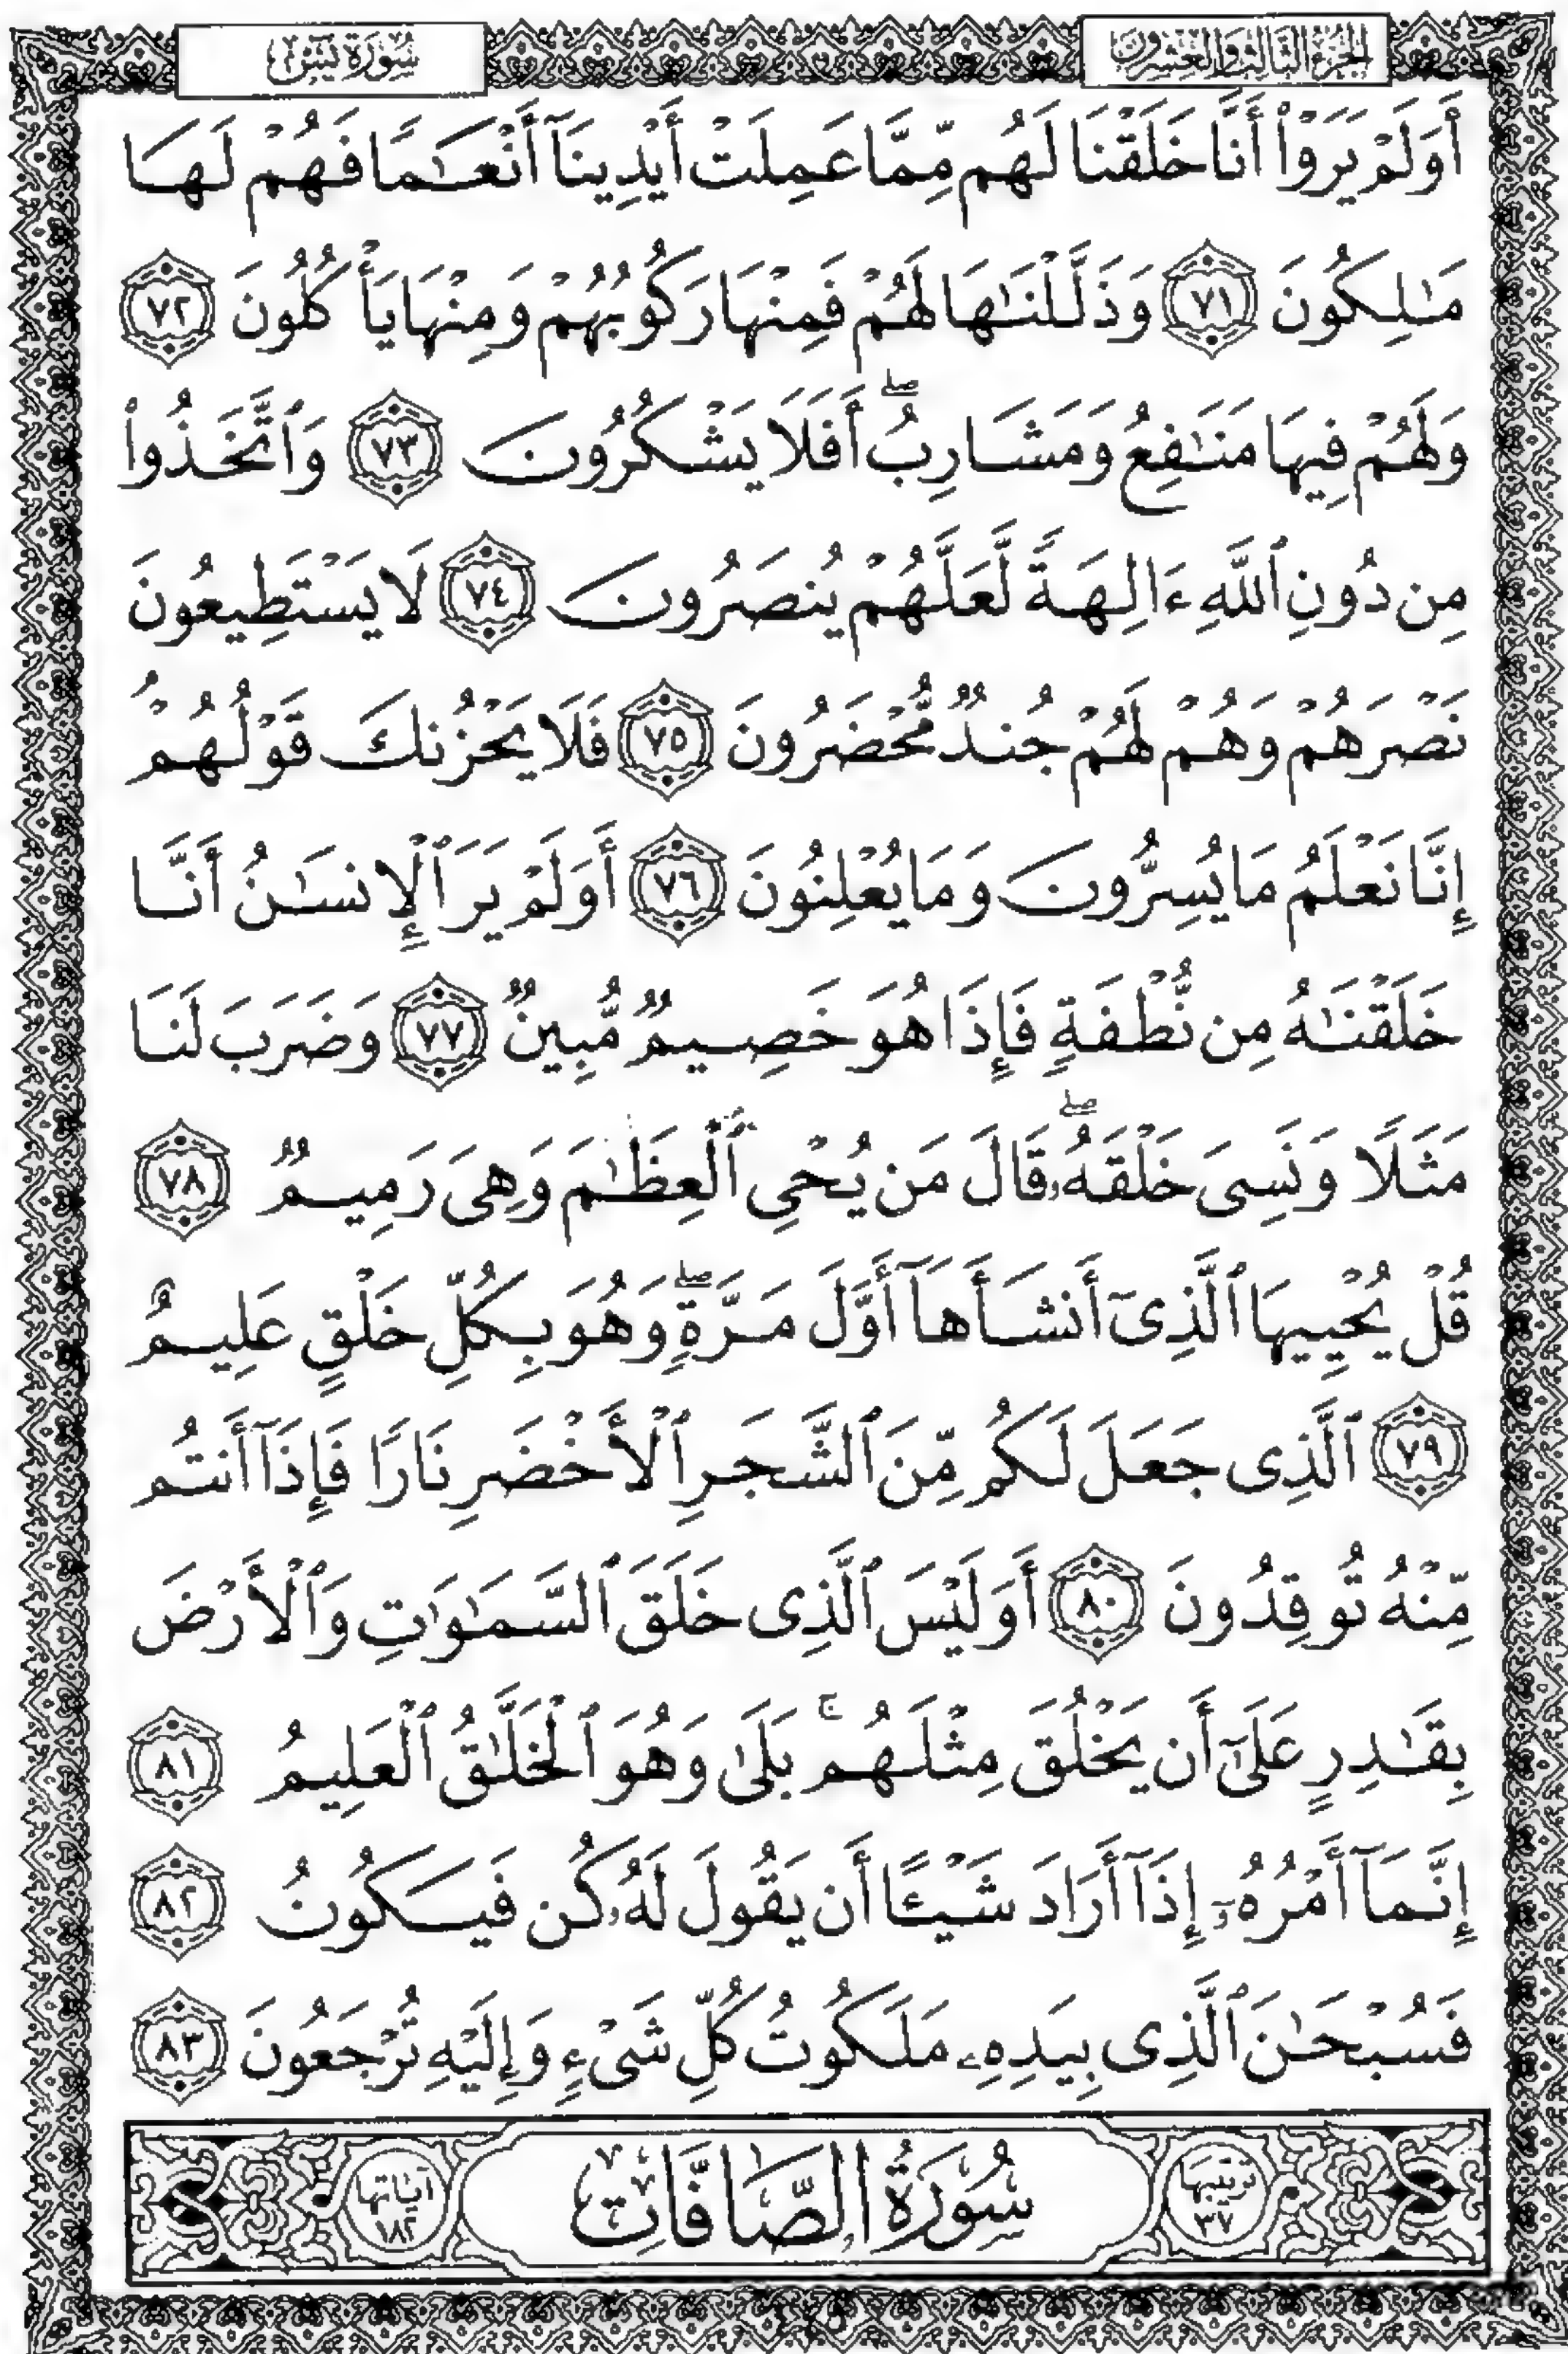 الجزء الثالث والعشرون
سورة يس
أَوَلَمْ يَرَوْا۟ أَنَّا خَلَقْنَا لَهُم مِّمَّا عَمِلَتْ أَيْدِينَآ أَنْعَـٰمًا فَهُمْ لَهَا
مَـٰلِكُونَ ٧١ وَذَلَّلْنَـٰهَا لَهُمْ فَمِنْهَا رَكُوبُهُمْ وَمِنْهَا يَأْكُلُونَ ٧٢
وَلَهُمْ فِيهَا مَنَـٰفِعُ وَمَشَارِبُ ۖ أَفَلَا يَشْكُرُونَ ٧٣ وَٱتَّخَذُوا۟
مِن دُونِ ٱللَّهِ ءَالِهَةً لَّعَلَّهُمْ يُنصَرُونَ ٧٤ لَا يَسْتَطِيعُونَ
نَصْرَهُمْ وَهُمْ لَهُمْ جُندٌ مُّحْضَرُونَ ٧٥ فَلَا يَحْزُنكَ قَوْلُهُمْ ۘ
إِنَّا نَعْلَمُ مَا يُسِرُّونَ وَمَا يُعْلِنُونَ ٧٦ أَوَلَمْ يَرَ ٱلْإِنسَـٰنُ أَنَّا
خَلَقْنَـٰهُ مِن نُّطْفَةٍ فَإِذَا هُوَ خَصِيمٌ مُّبِينٌ ٧٧ وَضَرَبَ لَنَا
مَثَلًا وَنَسِىَ خَلْقَهُۥ ۖ قَالَ مَن يُحْىِ ٱلْعِظَـٰمَ وَهِىَ رَمِيمٌ ٧٨
قُلْ يُحْيِيهَا ٱلَّذِىٓ أَنشَأَهَآ أَوَّلَ مَرَّةٍ ۖ وَهُوَ بِكُلِّ خَلْقٍ عَلِيمٌ
٧٩ ٱلَّذِى جَعَلَ لَكُم مِّنَ ٱلشَّجَرِ ٱلْأَخْضَرِ نَارًا فَإِذَآ أَنتُم
مِّنْهُ تُوقِدُونَ ٨٠ أَوَلَيْسَ ٱلَّذِى خَلَقَ ٱلسَّمَـٰوَٰتِ وَٱلْأَرْضَ
بِقَـٰدِرٍ عَلَىٰٓ أَن يَخْلُقَ مِثْلَهُم ۚ بَلَىٰ وَهُوَ ٱلْخَلَّـٰقُ ٱلْعَلِيمُ ٨١
إِنَّمَآ أَمْرُهُۥٓ إِذَآ أَرَادَ شَيْـًٔا أَن يَقُولَ لَهُۥ كُن فَيَكُونُ ٨٢
فَسُبْحَـٰنَ ٱلَّذِى بِيَدِهِۦ مَلَكُوتُ كُلِّ شَىْءٍ وَإِلَيْهِ تُرْجَعُونَ ٨٣
ترتيبها ٣٧ سُورَةُ الصَّافَّاتِ آياتها ١٨٢